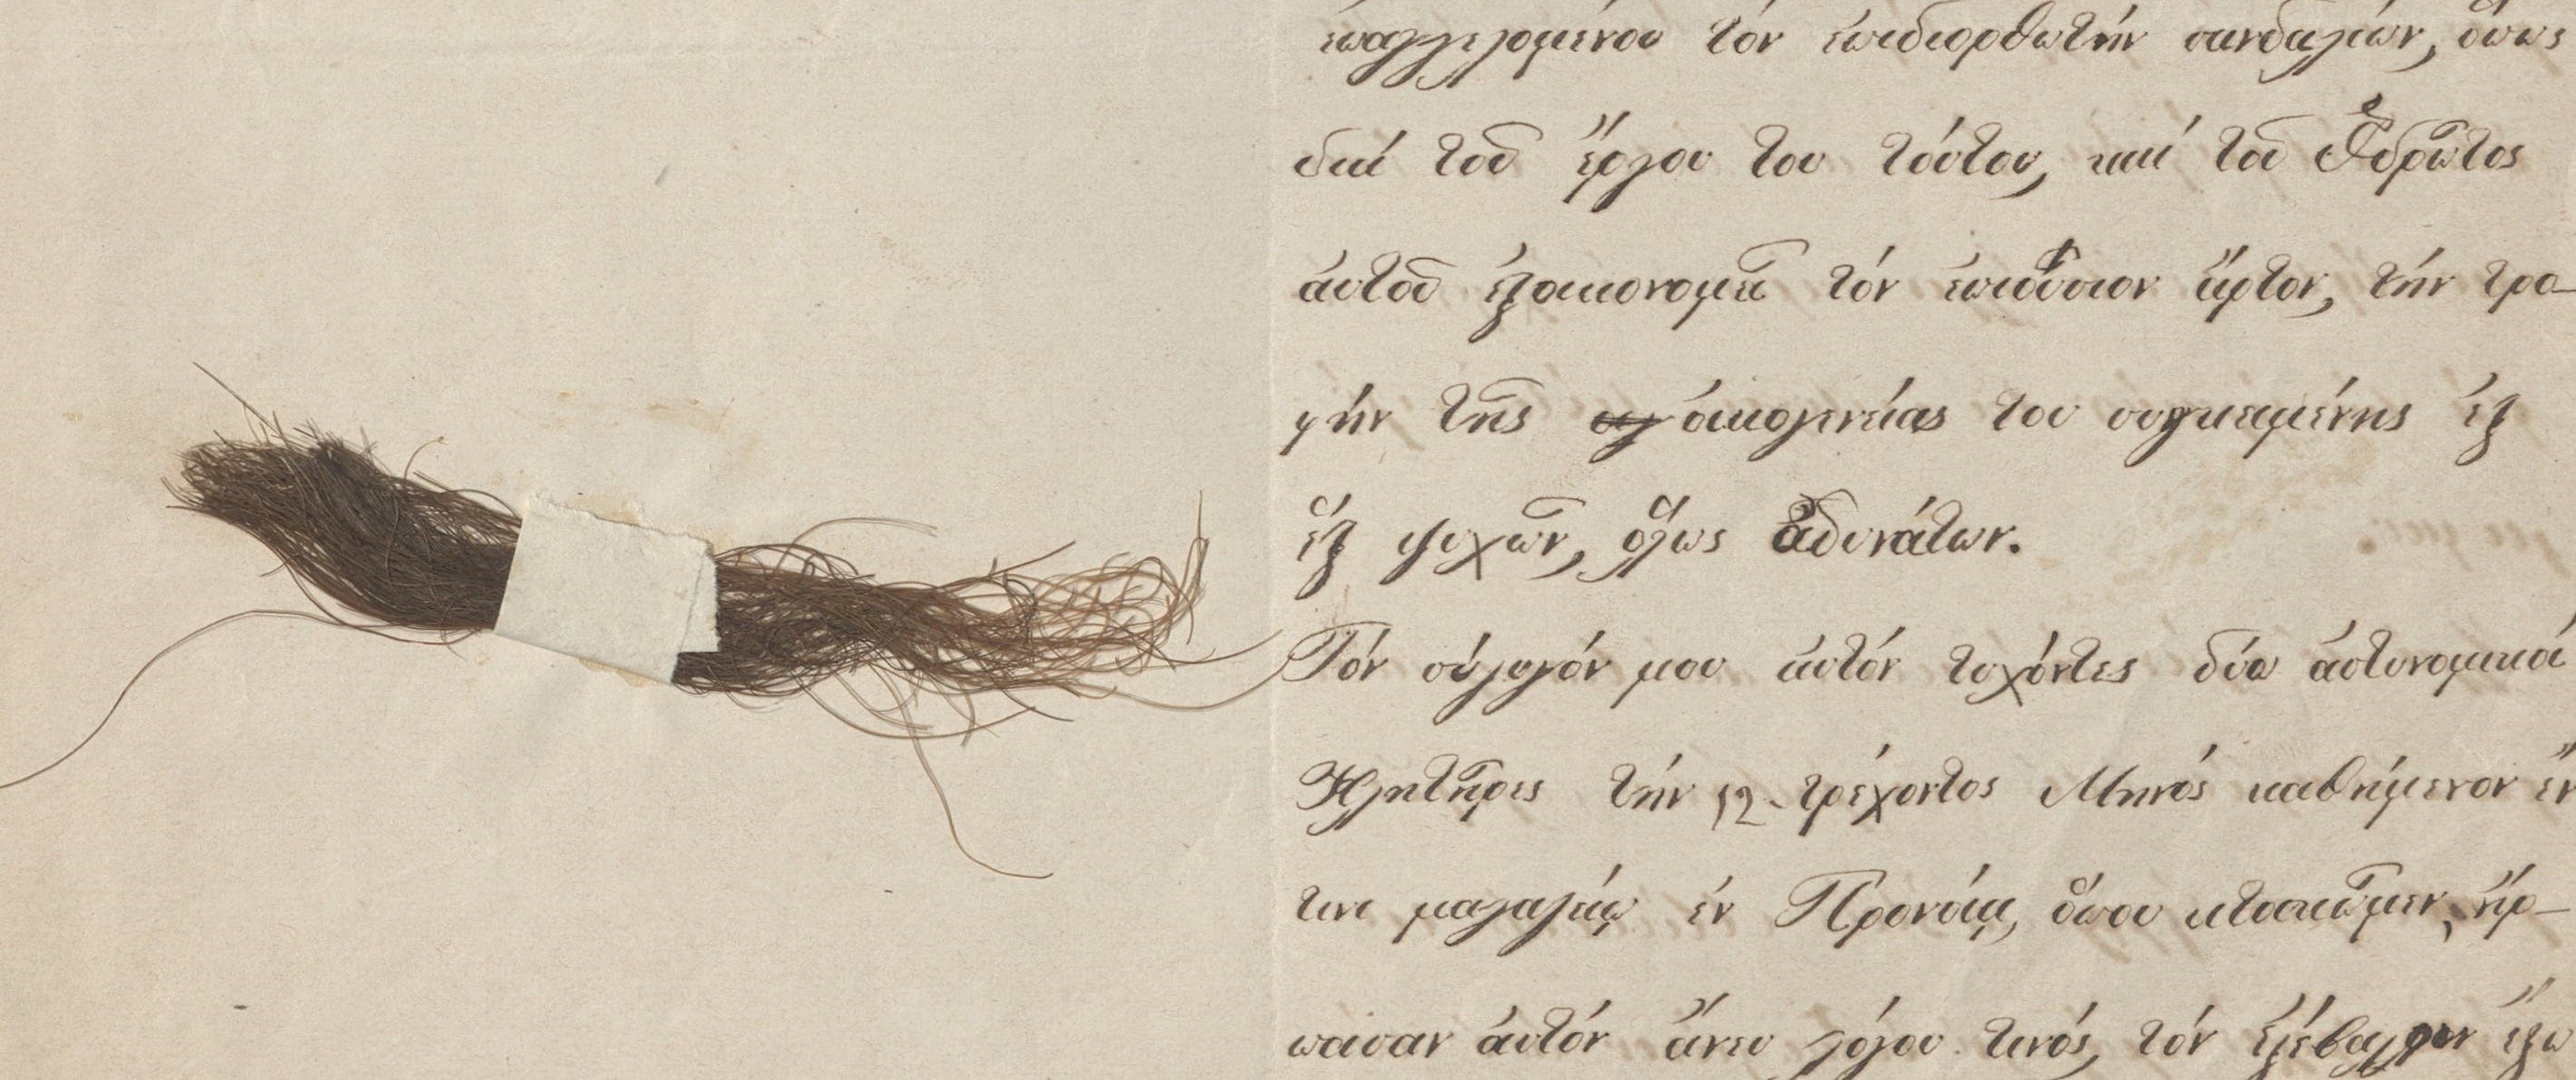 ἐπαγγελομένου τόν ἐπιδιορθωτήν σανδαλίων, ὅπως
διά τοῦ ἔργου του τούτου, καί τοῦ ἱδρῶτος
ἀυτοῦ ἐξοικονομεῖ τόν ἐπιούσιον ἄρτον, τήν τρο-
φήν τῆς ὀικογενείας του συγκειμένης ἐξ
ἕξ ψυχῶν, ὅλως ἀδυνάτων.
Τόν σύζυγόν μου ἀυτόν τυχόντες δύο ἀστυνομικοί
Κλητῆρες τήν 12 τρέχοντος Μηνός καθήμενον ἔν
τινι μαγαζείῳ ἐν Προνοίᾳ, ὅπου κατοικοῦμεν, ἥρ-
πασαν ἀυτόν ἄνευ λόγου τινός, τόν ἐξέβαλον ἔξω